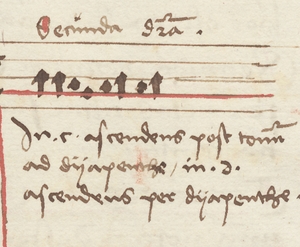 Secunda dr̃a .
In . c . ascendens post tonũ
ad dyapenthe / in . d .
ascendens per dyapenthe .